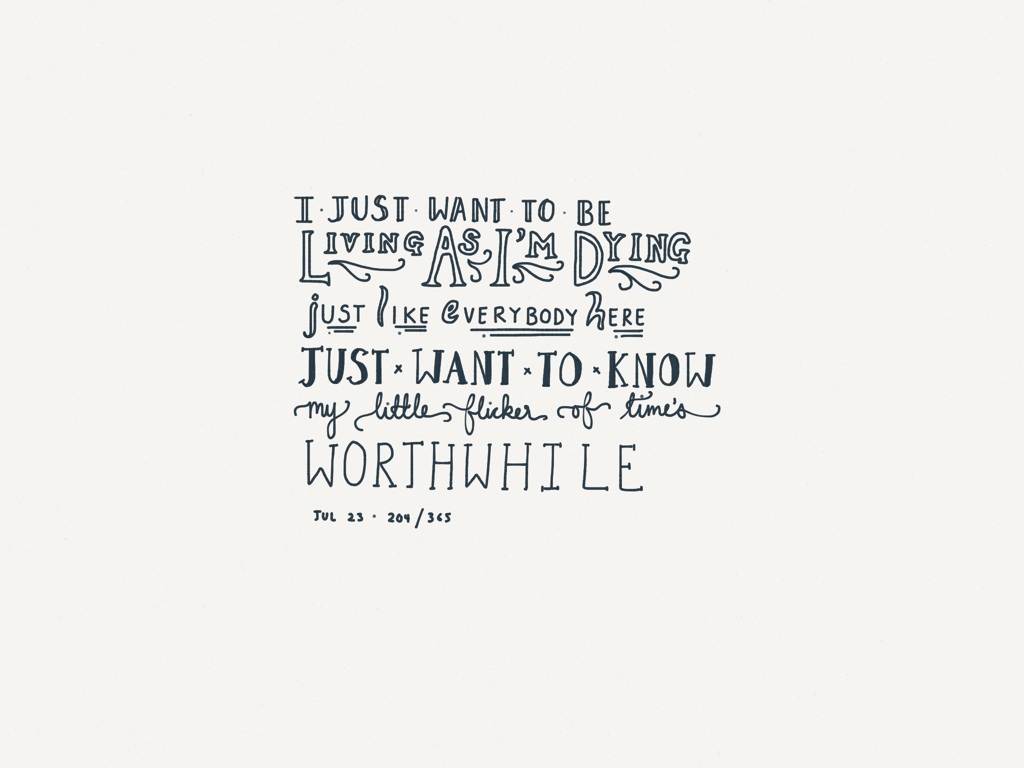 I · JUST · WANT · TO · BE
LIVING AS I'M DYING
just like everybody here
JUST × WANT × TO × KNOW
my little flicker of time's
WORTHWHILE
JUL 23 · 204/365